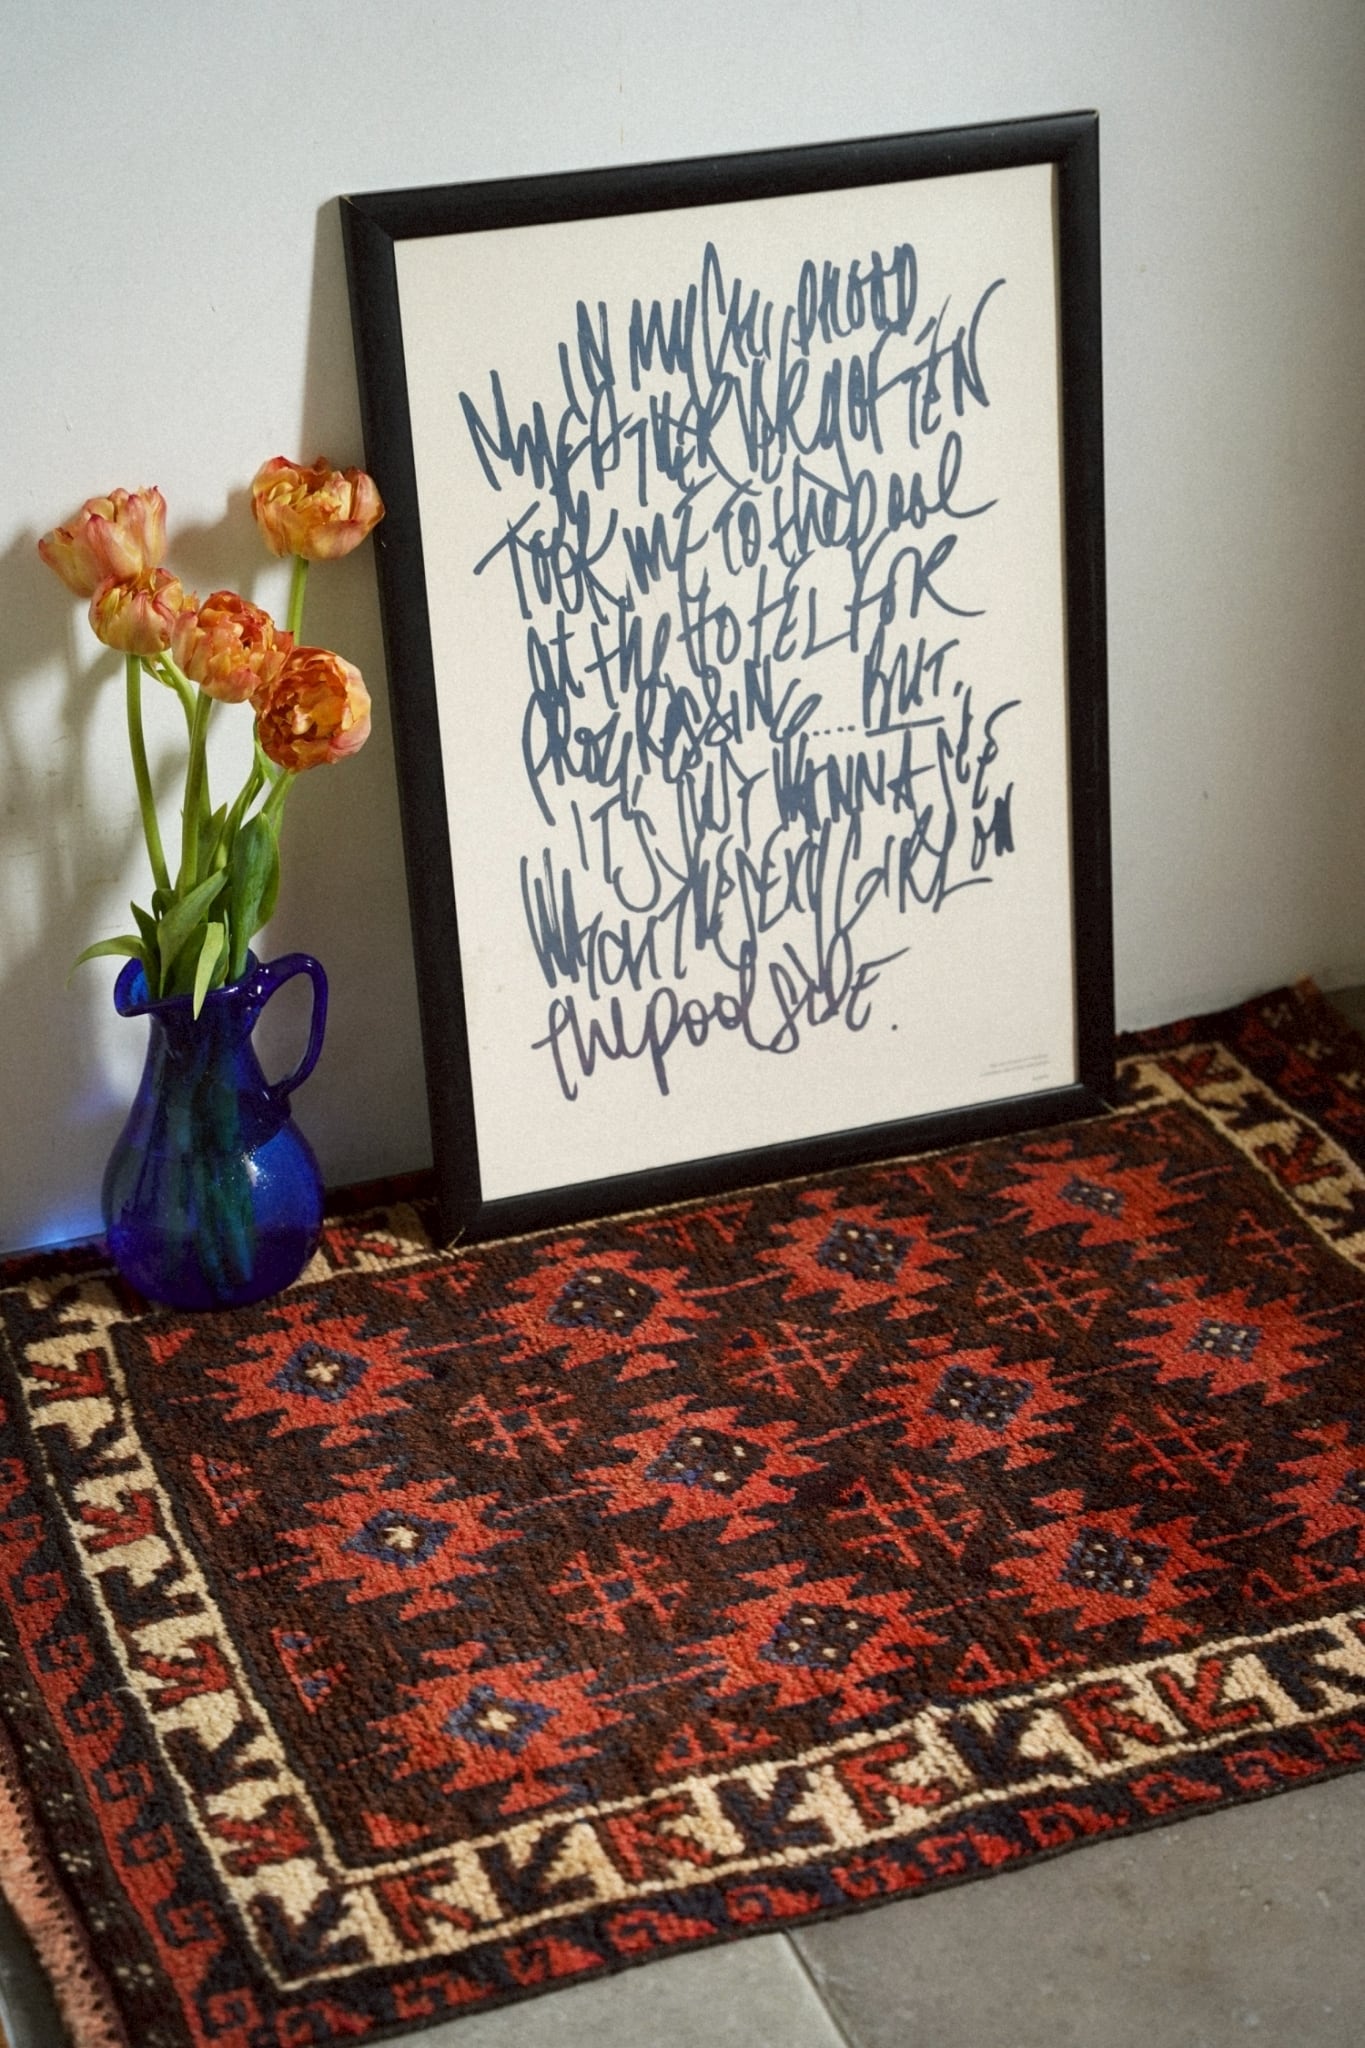 IN MY CHILDHOOD
MY FATHER VERY OFTEN
TOOK ME TO the pool
At the HOTEL FOR
PROGRESSING.....BUT.
IT'S JUST WANNA SEE
WATCH THE SEXY GIRL ON
the pool SIDE.